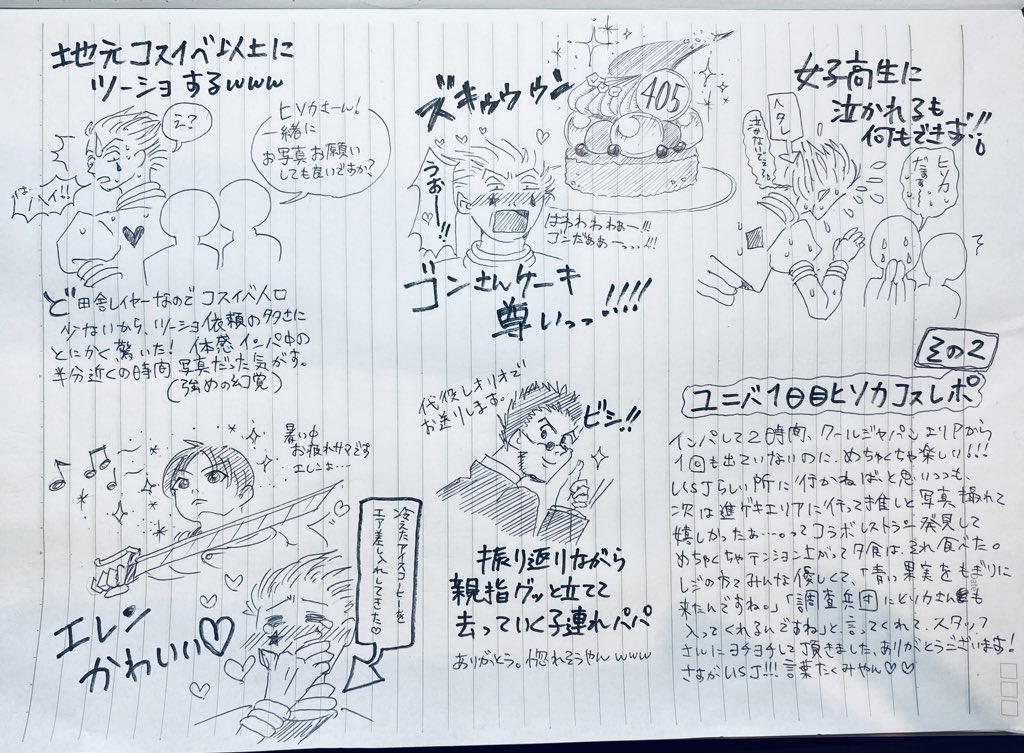 地元コスイベ以上に
ツーショするwww
え?
ヒソカさーん!
一緒に
お写真お願い
しても良いですか?
はイ!!
ど田舎レイヤーなのでコスイベ人口
少ないから、ツーショ依頼の多さに
とにかく驚いた! 体感インパ中の
半分近くの時間 写真だった気がす。
(強めの幻覚)
ズキゥゥゥン
405
うおー!!
はわわわわぁー!!!
ゴンだぁぁーっっっ!!!
ゴンさんケーキ
尊いっっ!!!!
女子高生に
泣かれるも
何もできず!!
ヘタレ
泣かないでぇ〜
ヒソカ
だぁぁ〜
その2
ユニバ1日目ヒソカコスレポ
インパして2時間、クールジャパンエリアから
1回も出ていないのに、めちゃくちゃ楽しい!!!
USJらしい所に行かねばと思いつつも、
次は進ゲキエリアに行って推しと写真撮れて
嬉しかったぁ…。ってコラボレストラン発見して
めちゃくちゃテンション上がって夕食はそれ食べた。
レジの方でみんな優しくて、「青い果実をもぎりに
来たんですね。」「調査兵団にヒソカさんも
入ってくれるんですね」と言ってくれて、スタッフ
さんにヨチヨチして頂きました、ありがとうございます!
さすがUSJ!!! 言葉たくみやん♡♡
代役レオリオで
お送りします。
ビシ!!
振り返りながら
親指グッと立てて
去っていく子連れパパ
ありがとう。惚れそうやんwww
暑い中
お疲れサマです
エレンよ…
冷えたアイスコーヒーを
エア差し入れしてきた♡
エレン
かわいい♡